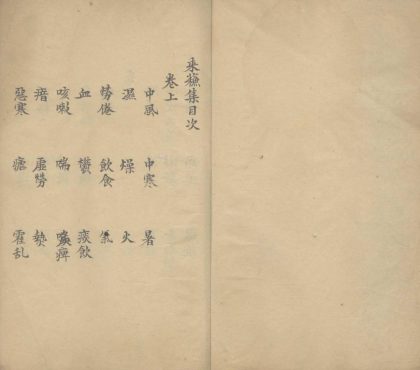 集目次
卷上
中風 中寒 暑
濕 燥 火
勞倦 飲食 氣
血 鬱 痰飲
咳嗽 喘
虛勞 熱
惡寒 瘧 霍乱